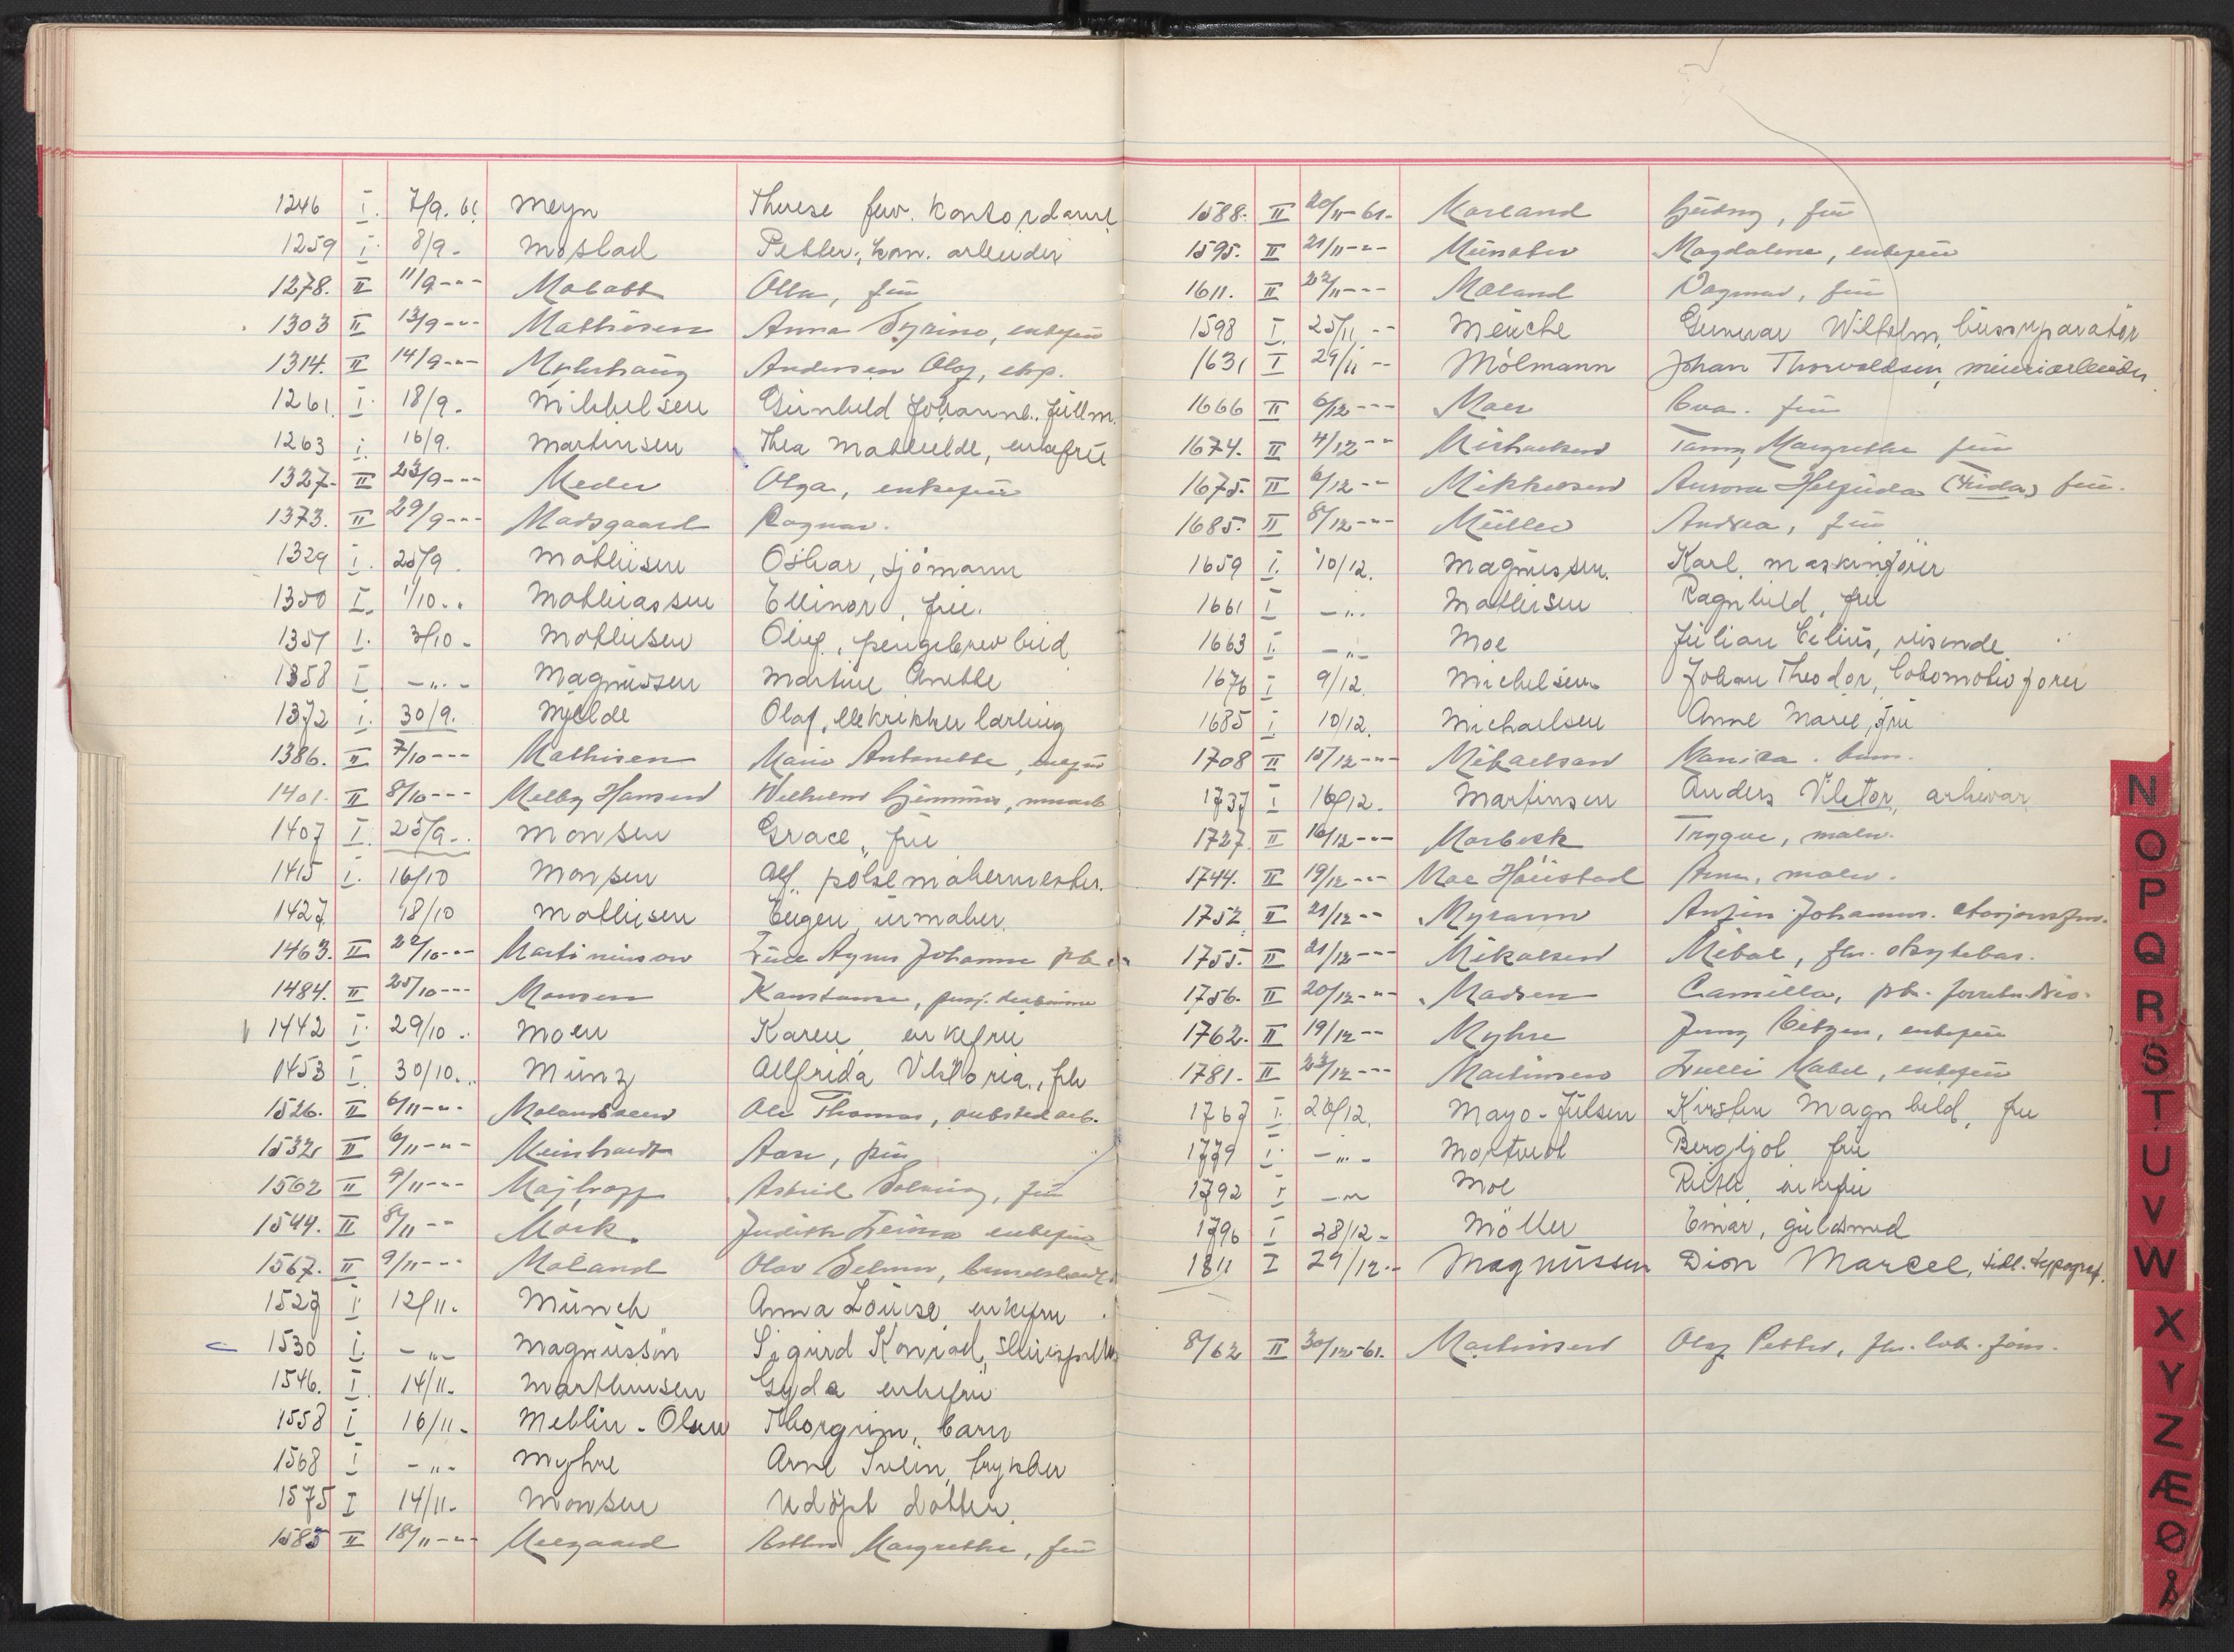 1246 I. 7/9. 61 Meyn Therese frv. kontordame
1259 I. 8/9. Mostad Petter, kom. arbeider
1278. II 11/9 -"- fru
1303 II 13/9 -"- Mathisen Anna enkefru
1314. II 14/9 -"- Myhrhaug Andersen Olaf, eksp.
1261. I. 18/9. Mikkelsen Gunhild Johanne
1263 I. 16/9. Martinsen Thea Mathilde, enkefru
1327. II 23/9 -"- Meder Olga, enkefru
1373. II 29/9 -"- Madsgaard Ragnar.
1329 I. 25/9. Mathisen Oskar, sjömann
1350 I. 1/10 Mathiassen Ellinor, fru.
1351 I. 3/10 - Mathisen Oluf, pengebrevbud
1358 I -"- Magnussen Martine Anette
1372 I. 30/9. Mjelde Olaf, elektriker lærling
1386. II 7/10 -"- Mathisen Marie Antonette, enkefru
1401. II 8/10 -"- Melby Hansen Wilhelm
1407 I. 25/9 Monsen Grace, fru
1415 I. 16/10 Monsen Alf. pølsemakermester.
1427 18/10 Mathisen Eugen urmaker.
1463. II 22/10 -"- Martiniussen Agnes Johanne
1484. II 25/10 -"- Monsen Konstanse, pensj.
1442 I. 29/10 Moen Karen, enkefru
1453 I. 30/10 Münz Allfrida Viktoria, frk
1526. II 6/11 -"- Ole Thomas,
1532 II 6/11 -"- Meinhardt Aase, fru
1562 II 9/11 -"- Astrid Solveig, fru
1544. II 8/11 -"- Mork. Judith enkefru
1567. II 9/11 -"- Moland Olav
1527 I 12/11. Münch Anna Louise enkefru
1530 I. -"- Magnussön Sigurd Konrad,
1546. I. 14/11. Marthinsen Gyda enkefru
1558 I 16/11. Metlin - Olsen Thorgrim, barn
1568 I -"- Myhre Arne Svein, trykker
1575 I 14/11. Monsen Udöpt datter.
1585 II 18/11 -"- Meegaard Esther Margrethe, fru
1588. II 20/11-61. fru
1595. II 21/11 -"- Münster Magdalene, enkefru
1611. II 22/11 -"- Moland Dagmar, fru
1598 I. 25/11 Meuche Gunnar Wilhelm, bussreparatør
1631 I 29/11 Mölmann Johan Thorvaldsen, meieriarbeider
1666 II 6/12 -"- Moer Eva. fru
1674. II 4/12 -"- Michaelsen Fanny Margrethe fru
1675. II 6/12 -"- Mikkelsen Aurora (Frida) fru.
1685. II 8/12 -"- Müller Andrea, fru
1659 I. 10/12. Magnussen. Karl. maskinfører
1661 I -"- Mathisen Ragnhild, fru
1663 I. -"- Moe Julian Celius, reisende
1676 I 9/12. Michelsen Johan Theodor, lokomotivfører
1685 I 10/12. Michaelsen Anne Marie, fru
1708 II 15/12 -"- Mikaelsen Monika. barn.
1737 I 16/12. Martinsen Anders Viktor, arkivar
1727 II 16/12 -"- Morbeck Trygve, maler.
1744. II 19/12 -"- Moe Höistad maler.
1752 II 21/12 -"- Myrann Johannes. stasjonsfm.
1755. II 21/12 -"- Mikalsen Mikal,
1756. II 20/12 -"- Madsen Camilla,
1762. II 19/12 -"- Myhre Jenny enkefru
1781. II 23/12 -"- Martinsen Lulli Mabel, enkefru
1767 I. 26/12. Mayo-Julsen Kirsten Magnhild, fru
1779 I. -"- Mortvedt Bergljot fru
1792 I -"- Moe Ruth, enkefru
1796 I 28/12 - Möller Einar, gullsmed
1811 I 29/12 Magnussen Dion Marcel, tidl. typograf.
8/62 II 30/12-61. Martinsen Olaf Petter, fhv. lok. fører.
N
O
P
Q
R
S
T
U
V
W
X
Y
Z
Æ
Ø
Å